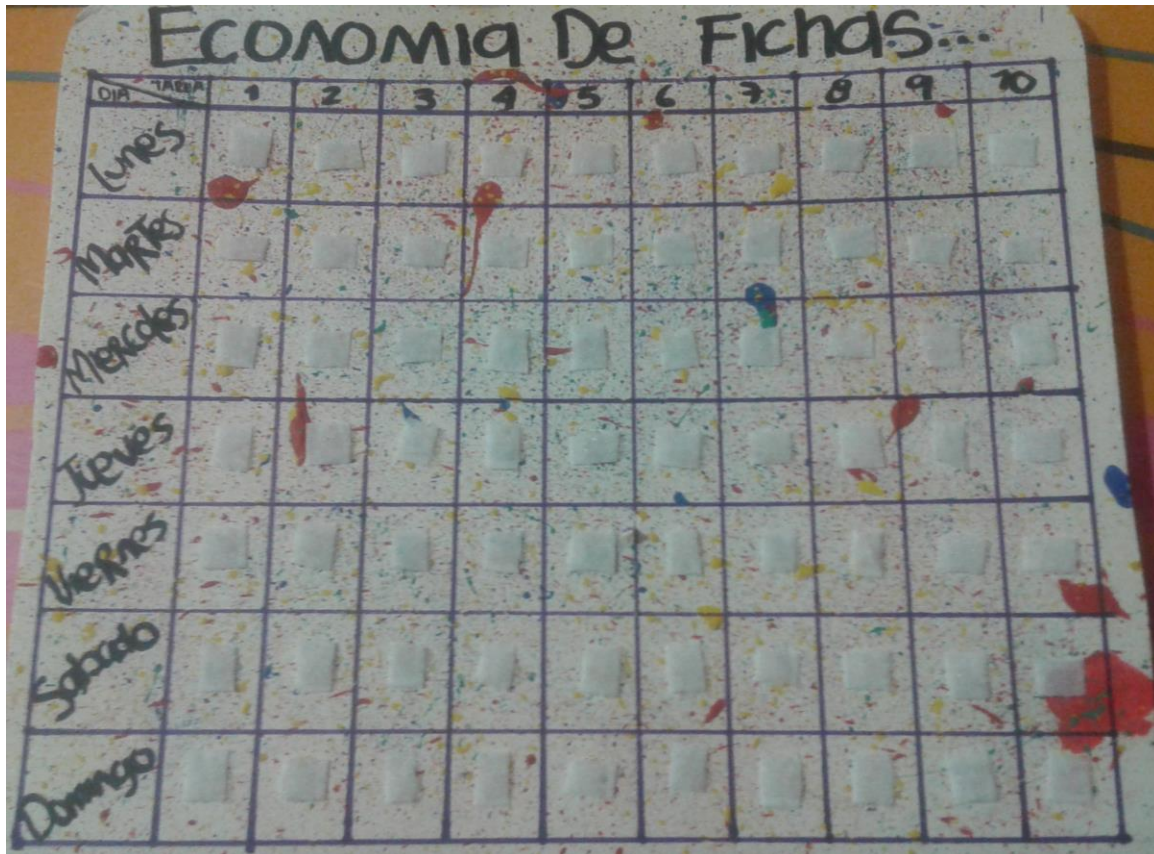 ECONOMIA DE FICHAS...
DIA TAREA 1 2 3 4 5 6 7 8 9 10
Lunes
MARTES
MIERCOLES
JUEVES
VIERNES
Sabado
Domingo